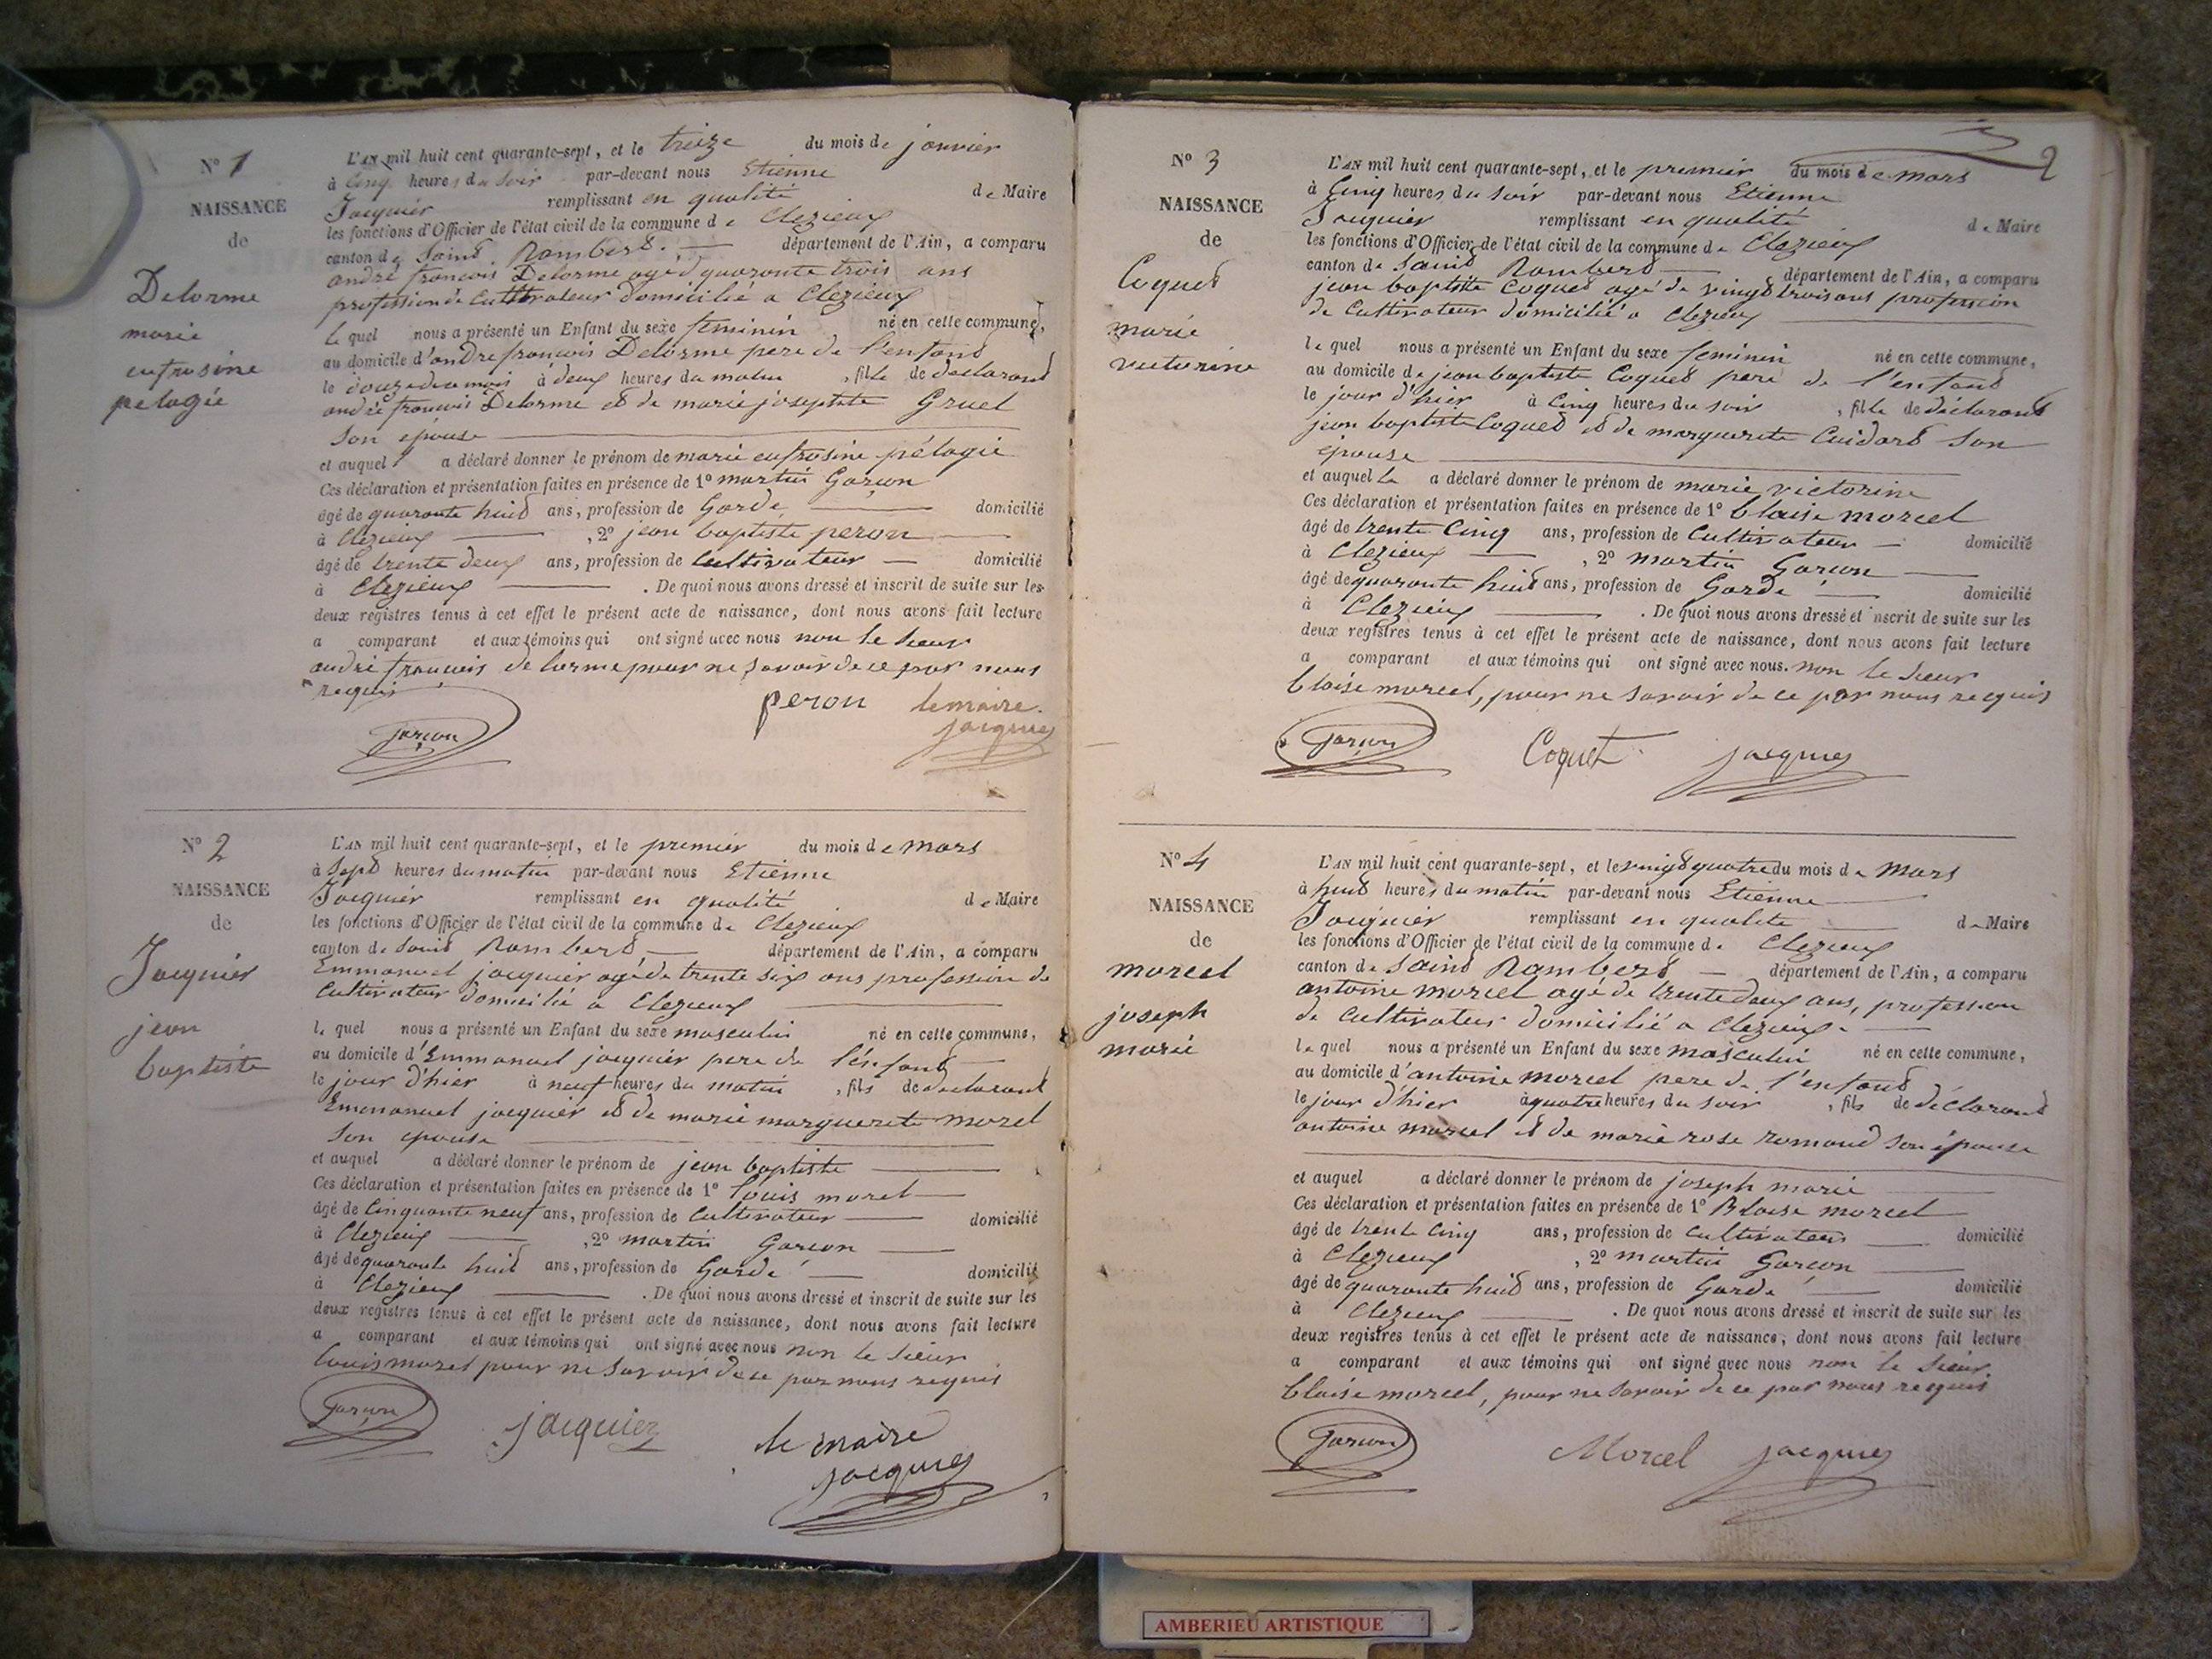 N° 1
NAISSANCE
de
Delorme
marie
eufrosine
pelagie
L'AN mil huit cent quarante-sept, et le treize du mois de janvier
à cinq heures du soir par-devant nous Etienne
Jacquier remplissant en qualité de Maire
les fonctions d'Officier de l'état civil de la commune de Clezieux
canton de Saint Rambert. département de l'Ain, a comparu
andré francois Delorme agé d quaronte trois ans
profession de Cultivateur domicilié a Clezieux
le quel nous a présenté un Enfant du sexe feminin né en cette commune,
au domicile d'andré francois Delorme pere de l'enfant
le douze du mois à deux heures du matin, fille de declarant
andré francois Delorme et de marie josephte Gruel
son epouse
et auquel a déclaré donner le prénom de marie eufrosine pélagie
Ces déclaration et présentation faites en présence de 1° martin Garçon
âgé de quaronte huit ans, profession de Garde domicilié
à Clezieux, 2° jean baptiste peron
âgé de trente deux ans, profession de Cultivateur domicilié
à Clezieux. De quoi nous avons dressé et inscrit de suite sur les
deux registres tenus à cet effet le présent acte de naissance, dont nous avons fait lecture
a comparant et aux témoins qui ont signé avec nous non le sieur
andré francois delorme pour ne savoir de ce par nous
requis
peron le maire
garçon jacquier
N° 2
NAISSANCE
de
Jacquier
jean
baptiste
L'AN mil huit cent quarante-sept, et le premier du mois de mars
à Sept heures du matin par-devant nous Etienne
Jacquier remplissant en qualité de Maire
les fonctions d'Officier de l'état civil de la commune de Clezieux
canton de Saint Rambert département de l'Ain, a comparu
Emmanuel jacquier agé de trente six ans profession de
Cultivateur domicilié a Clezieux
le quel nous a présenté un Enfant du sexe masculin né en cette commune,
au domicile d'Emmanuel jacquier pere de l'enfant
le jour d'hier à neuf heures du matin, fils de declarant
Emmanuel jacquier et de marie marguerite morel
son epouse
et auquel a déclaré donner le prénom de jean baptiste
Ces déclaration et présentation faites en présence de 1° louis morel
âgé de Cinquante neuf ans, profession de Cultivateur domicilié
à Clezieux, 2° martin Garçon
âgé de quaronte huit ans, profession de Garde domicilié
à Clezieux. De quoi nous avons dressé et inscrit de suite sur les
deux registres tenus à cet effet le présent acte de naissance, dont nous avons fait lecture
a comparant et aux témoins qui ont signé avec nous non le sieur
louis morel pour ne savoir de ce par nous requis
garçon jacquier le maire
jacquier
2
N° 3
NAISSANCE
de
Coquet
marie
victorine
L'AN mil huit cent quarante-sept, et le premier du mois de mars
à Cinq heures du soir par-devant nous Etienne
Jacquier remplissant en qualité de Maire
les fonctions d'Officier de l'état civil de la commune de Clezieux
canton de Saint Rambert département de l'Ain, a comparu
jean baptiste Coquet agé de vingt trois ans profession
de Cultivateur domicilié a Clezieux
le quel nous a présenté un Enfant du sexe feminin né en cette commune,
au domicile de jean baptiste Coquet pere de l'enfant
le jour d'hier à Cinq heures du soir, fille de déclarant
jean baptiste Coquet et de marguerite Cuidard son
épouse
et auquel le a déclaré donner le prénom de marie victorine
Ces déclaration et présentation faites en présence de 1° blaise morcel
âgé de trente Cinq ans, profession de Cultivateur domicilié
à Clezieux, 2° martin Garçon
âgé de quaronte huit ans, profession de Garde domicilié
à Clezieux. De quoi nous avons dressé et inscrit de suite sur les
deux registres tenus à cet effet le présent acte de naissance, dont nous avons fait lecture
a comparant et aux témoins qui ont signé avec nous. non le sieur
blaise morcel, pour ne savoir de ce par nous requis
garçon Coquet jacquier
N° 4
NAISSANCE
de
morcel
joseph
marie
L'AN mil huit cent quarante-sept, et le vingt quatre du mois de Mars
à huit heures du matin par-devant nous Etienne
Jacquier remplissant en qualité de Maire
les fonctions d'Officier de l'état civil de la commune de Clezieux
canton de Saint Rambert département de l'Ain, a comparu
antoine morcel agé de trente deux ans, profession
de Cultivateur domicilié a Clezieux.
le quel nous a présenté un Enfant du sexe masculin né en cette commune,
au domicile d'antoine morcel pere de l'enfant
le jour d'hier à quatre heures du soir, fils de déclarant
antoine morcel et de marie rose romand son épouse
et auquel a déclaré donner le prénom de joseph marie
Ces déclaration et présentation faites en présence de 1° Blaise morcel
âgé de trente Cinq ans, profession de Cultivateur domicilié
à Clezieux, 2° martin Garçon
âgé de quaronte huit ans, profession de Garde domicilié
à Clezieux. De quoi nous avons dressé et inscrit de suite sur les
deux registres tenus à cet effet le présent acte de naissance, dont nous avons fait lecture
a comparant et aux témoins qui ont signé avec nous non le sieur
blaise morcel, pour ne savoir de ce par nous requis
garçon Morcel jacquier
AMBERIEU ARTISTIQUE